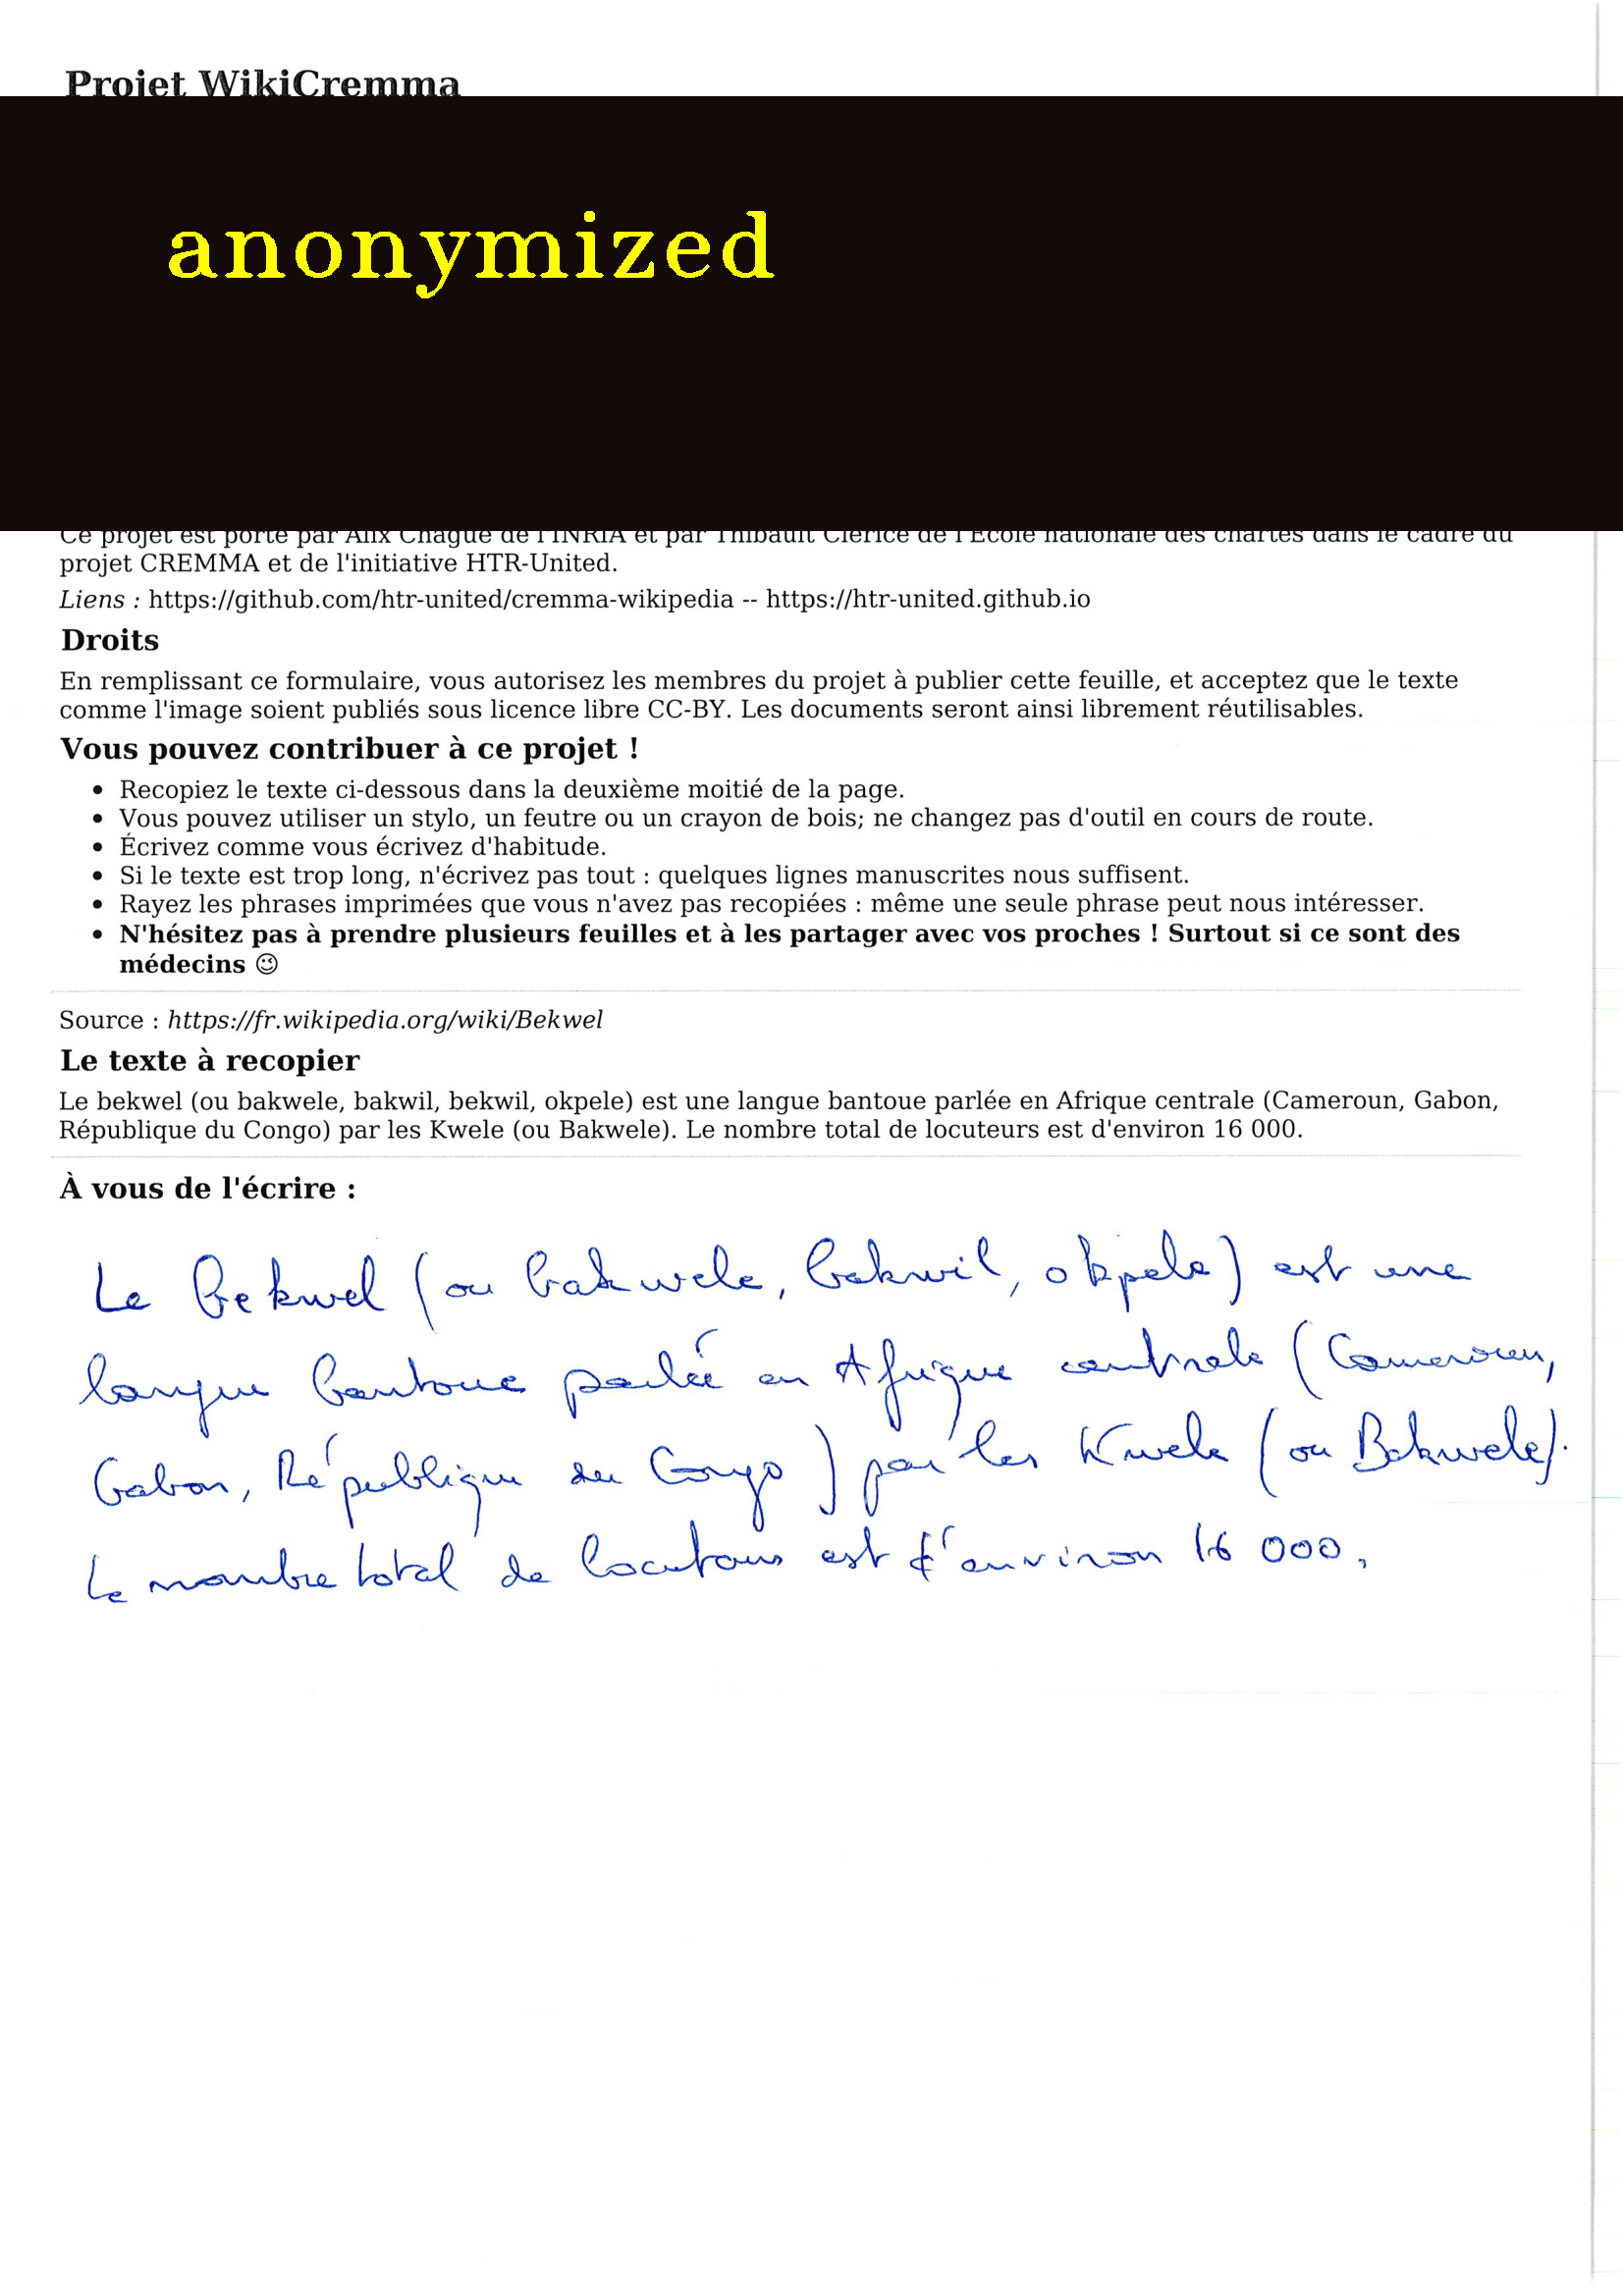 Projet WikiCremma
anonymized
Ce projet est porté par Alix Chagué de l'INRIA et par Thibault Clérice de l'École nationale des chartes dans le cadre du
projet CREMMA et de l'initiative HTR-United.
Liens : https://github.com/htr-united/cremma-wikipedia -- https://htr-united.github.io
Droits
En remplissant ce formulaire, vous autorisez les membres du projet à publier cette feuille, et acceptez que le texte
comme l'image soient publiés sous licence libre CC-BY. Les documents seront ainsi librement réutilisables.
Vous pouvez contribuer à ce projet !
• Recopiez le texte ci-dessous dans la deuxième moitié de la page.
• Vous pouvez utiliser un stylo, un feutre ou un crayon de bois; ne changez pas d'outil en cours de route.
• Écrivez comme vous écrivez d'habitude.
• Si le texte est trop long, n'écrivez pas tout : quelques lignes manuscrites nous suffisent.
• Rayez les phrases imprimées que vous n'avez pas recopiées : même une seule phrase peut nous intéresser.
• N'hésitez pas à prendre plusieurs feuilles et à les partager avec vos proches ! Surtout si ce sont des
médecins 😉
Source : https://fr.wikipedia.org/wiki/Bekwel
Le texte à recopier
Le bekwel (ou bakwele, bakwil, bekwil, okpele) est une langue bantoue parlée en Afrique centrale (Cameroun, Gabon,
République du Congo) par les Kwele (ou Bakwele). Le nombre total de locuteurs est d'environ 16 000.
À vous de l'écrire :
Le bekwel (ou bakwele, bekwil, okpele) est une
langue bantoue parlée en Afrique centrale (Cameroun,
Gabon, République du Congo) par les Kwele (ou Bakwele).
Le nombre total de locuteurs est d'environ 16 000.